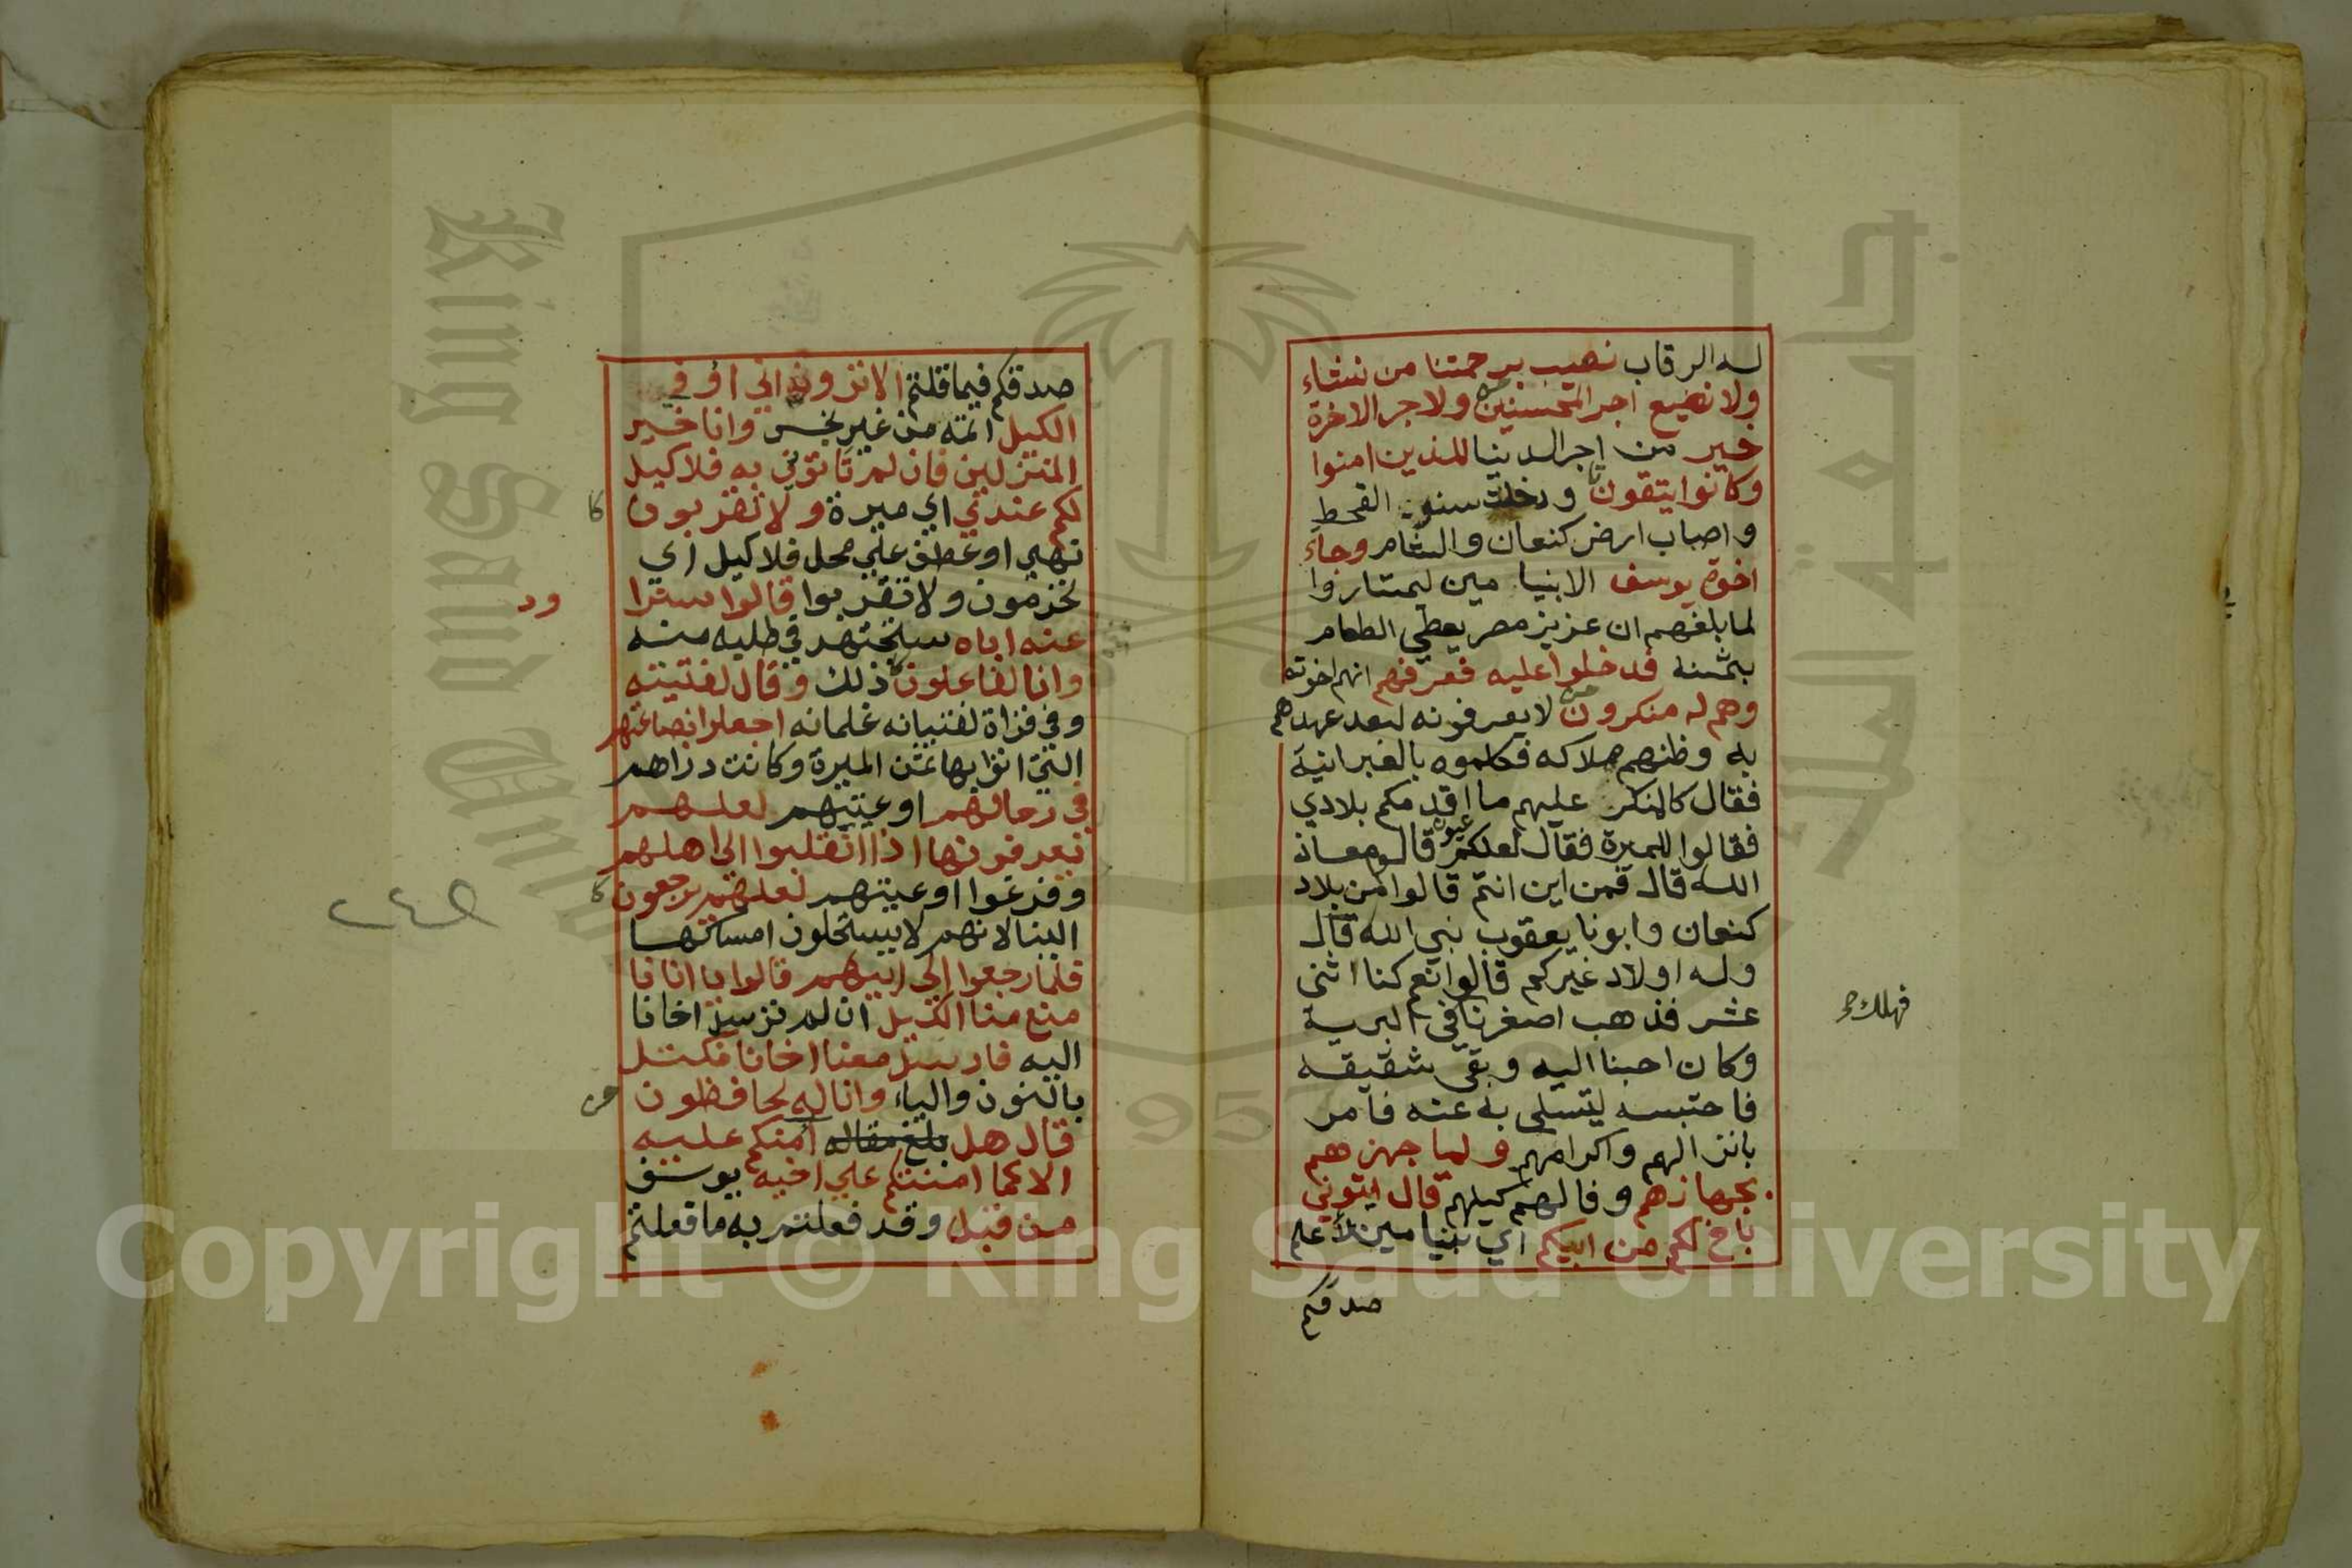 له الرقاب نصيب برحمتنا من نشاء
ولا نضيع اجر المحسنين ولاجر الاخرة
خير من اجر الدنيا للذين امنوا
وكانوا يتقون ودخلت سنو القحط
واصاب ارض كنعان والشام وجاء
اخوة يوسف الا بنيامين ليمتاروا
لما بلغهم ان عزيز مصر يعطي الطعام
بثمنه فدخلوا عليه فعرفهم انهم اخوته
وهم له منكرون لا يعرفونه لبعد عهدهم
به وظنهم هلاكه فكلموه بالعبرانية
فقال كالمنكر عليهم ما اقدمكم بلادي
فقالوا للميرة فقال لعلكم عيون قالوا معاذ
الله قال فمن اين انتم قالوا من بلاد
كنعان وابونا يعقوب نبي الله قال
وله اولاد غيركم قالوا نعم كنا اثنى
عشر فذهب اصغرنا في البرية
فهلك
وكان احبنا اليه وبقى شقيقه
فاحتبسه ليتسلى به عنه فامر
بانزالهم واكرامهم ولما جهزهم
بجهازهم وفا لهم كيلهم قال ايتوني
باخ لكم من ابيكم اي بنيامين لأعلم
صدقكم
صدقكم فيما قلتم الا ترون اني أوفي
الكيل اتمه من غير بخس وانا خير
المنزلين فان لم تاتوني به فلا كيل
لكم عندي اي ميرة ولا تقربون
نهي او عطف علي محل فلا كيل اي
تحرمون ولا تقربوا قالوا سنرا
ود
عنه اباه سنجتهد في طلبه منه
وانا لفاعلون ذلك وقال لفتيته
وفي قراة لفتيانه غلمانه اجعلوا بضاعتهم
التي اتوا بها ثمن الميرة وكانت دراهم
في رحالهم اوعيتهم لعلهم
يعرفونها اذا انقلبوا الى اهلهم
وفرغوا اوعيتهم لعلهم يرجعون
الينا لانهم لا يستحلون امساكها
فلما رجعوا الى ابيهم قالوا يا ابانا
منع منا الكيل ان لم ترسل اخانا
اليه فارسل معنا اخانا نكتل
بالنون والياء وانا له لحافظون
قال هل أمنكم عليه
الا كما امنتكم علي اخيه يوسف
من قبل وقد فعلتم به ما فعلتم
Copyright © King Saud University
King Saud University
1957